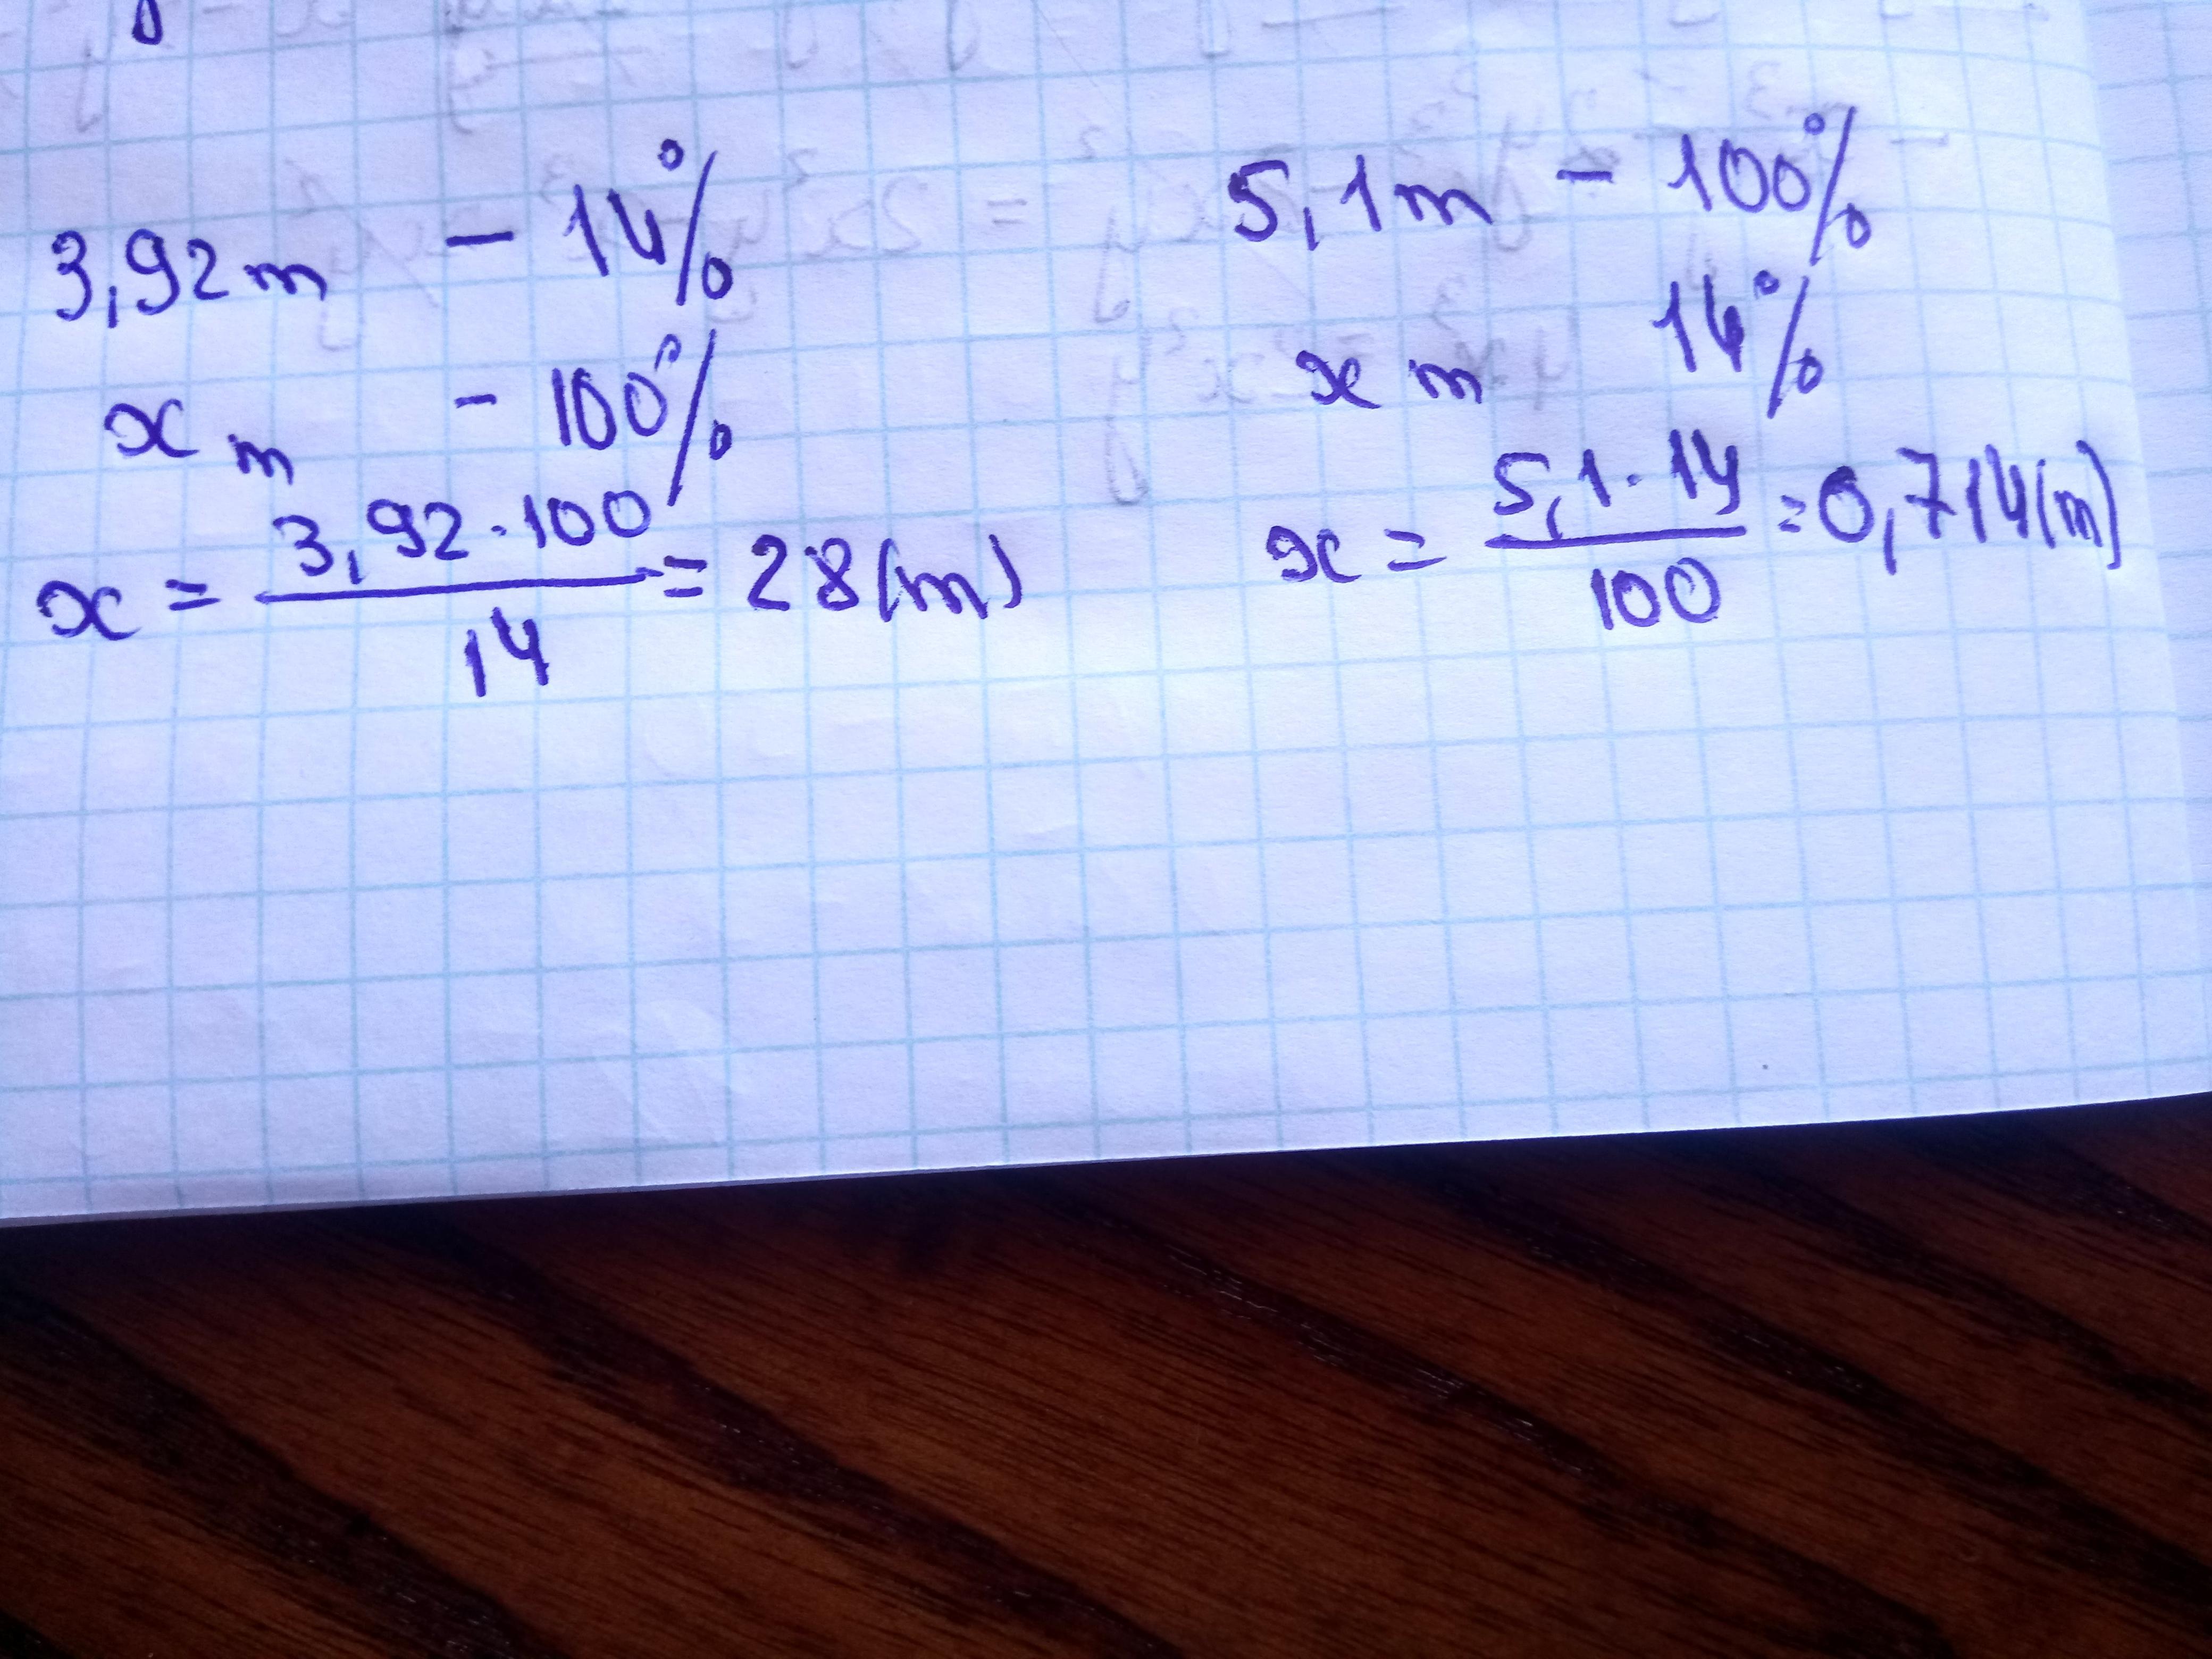 3,92 m - 14%
x m - 100%
x = 3,92·100 / 14 = 28 (m)
5,1 m - 100%
x m 14%
x = 5,1·14 / 100 = 0,714 (m)